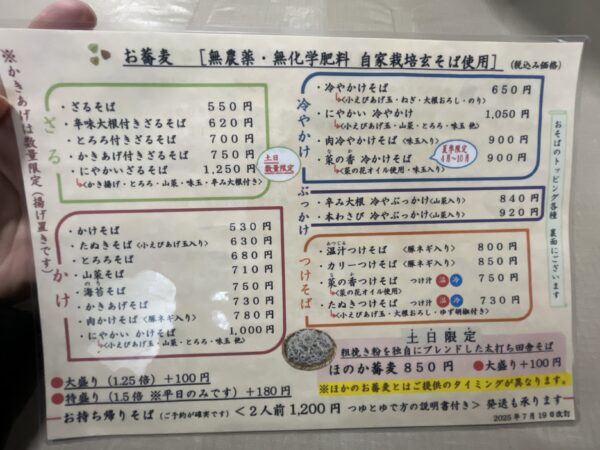 お蕎麦 [無農薬・無化学肥料 自家栽培玄そば使用] (税込み価格)
※かきあげは数量限定(揚げ置きです)
ざる
・ざるそば 550円
・辛味大根付きざるそば 620円
・とろろ付きざるそば 700円
・かきあげ付きざるそば 750円
・にやかいざるそば 1,250円
↳<かき揚げ・とろろ・山菜・味玉・辛み大根付き>
土日
数量限定
かけ
・かけそば 530円
・たぬきそば<小えびあげ玉入り> 630円
・とろろそば 680円
・山菜そば 710円
・海苔そば 750円
・かきあげそば 730円
・肉かけそば<豚ネギ入り> 780円
・にやかい かけそば 1,000円
↳<小えびあげ玉・山菜・とろろ・味玉 他>
冷やかけ
・冷やかけそば 650円
↳<小えびあげ玉・ねぎ・大根おろし・のり>
・にやかい 冷やかけ 1,050円
↳<小えびあげ玉・山菜・とろろ・味玉 他>
・肉冷やかけそば<味玉入り> 900円
・菜の香 冷かけそば 900円
↳<菜の花オイル使用・味玉入り>
夏季限定
4月〜10月
ぶっかけ
・辛み大根 冷やぶっかけ<山菜入り> 840円
・本わさび 冷やぶっかけ<山菜入り> 920円
つけそば
・温汁つけそば<豚ネギ入り> 800円
・カリーつけそば<豚ネギ入り> 850円
・菜の香つけそば つけ汁 温 冷 750円
↳<菜の花オイル使用>
・たぬきつけそば つけ汁 温 冷 730円
↳<小えびあげ玉・大根おろし・ゆず胡椒付き>
おそばのトッピング各種 裏面にございます
土日限定
粗挽き粉を独自にブレンドした太打ち田舎そば
ほのか蕎麦 850円 ●大盛り+100円
※ほかのお蕎麦とはご提供のタイミングが異なります。
●大盛り(1.25倍)+100円
●特盛り(1.5倍 ※平日のみです)+180円
お持ち帰りそば(ご予約が確実です)<2人前1,200円 つゆとゆで方の説明書付き> 発送も承ります
2025年7月19日改訂